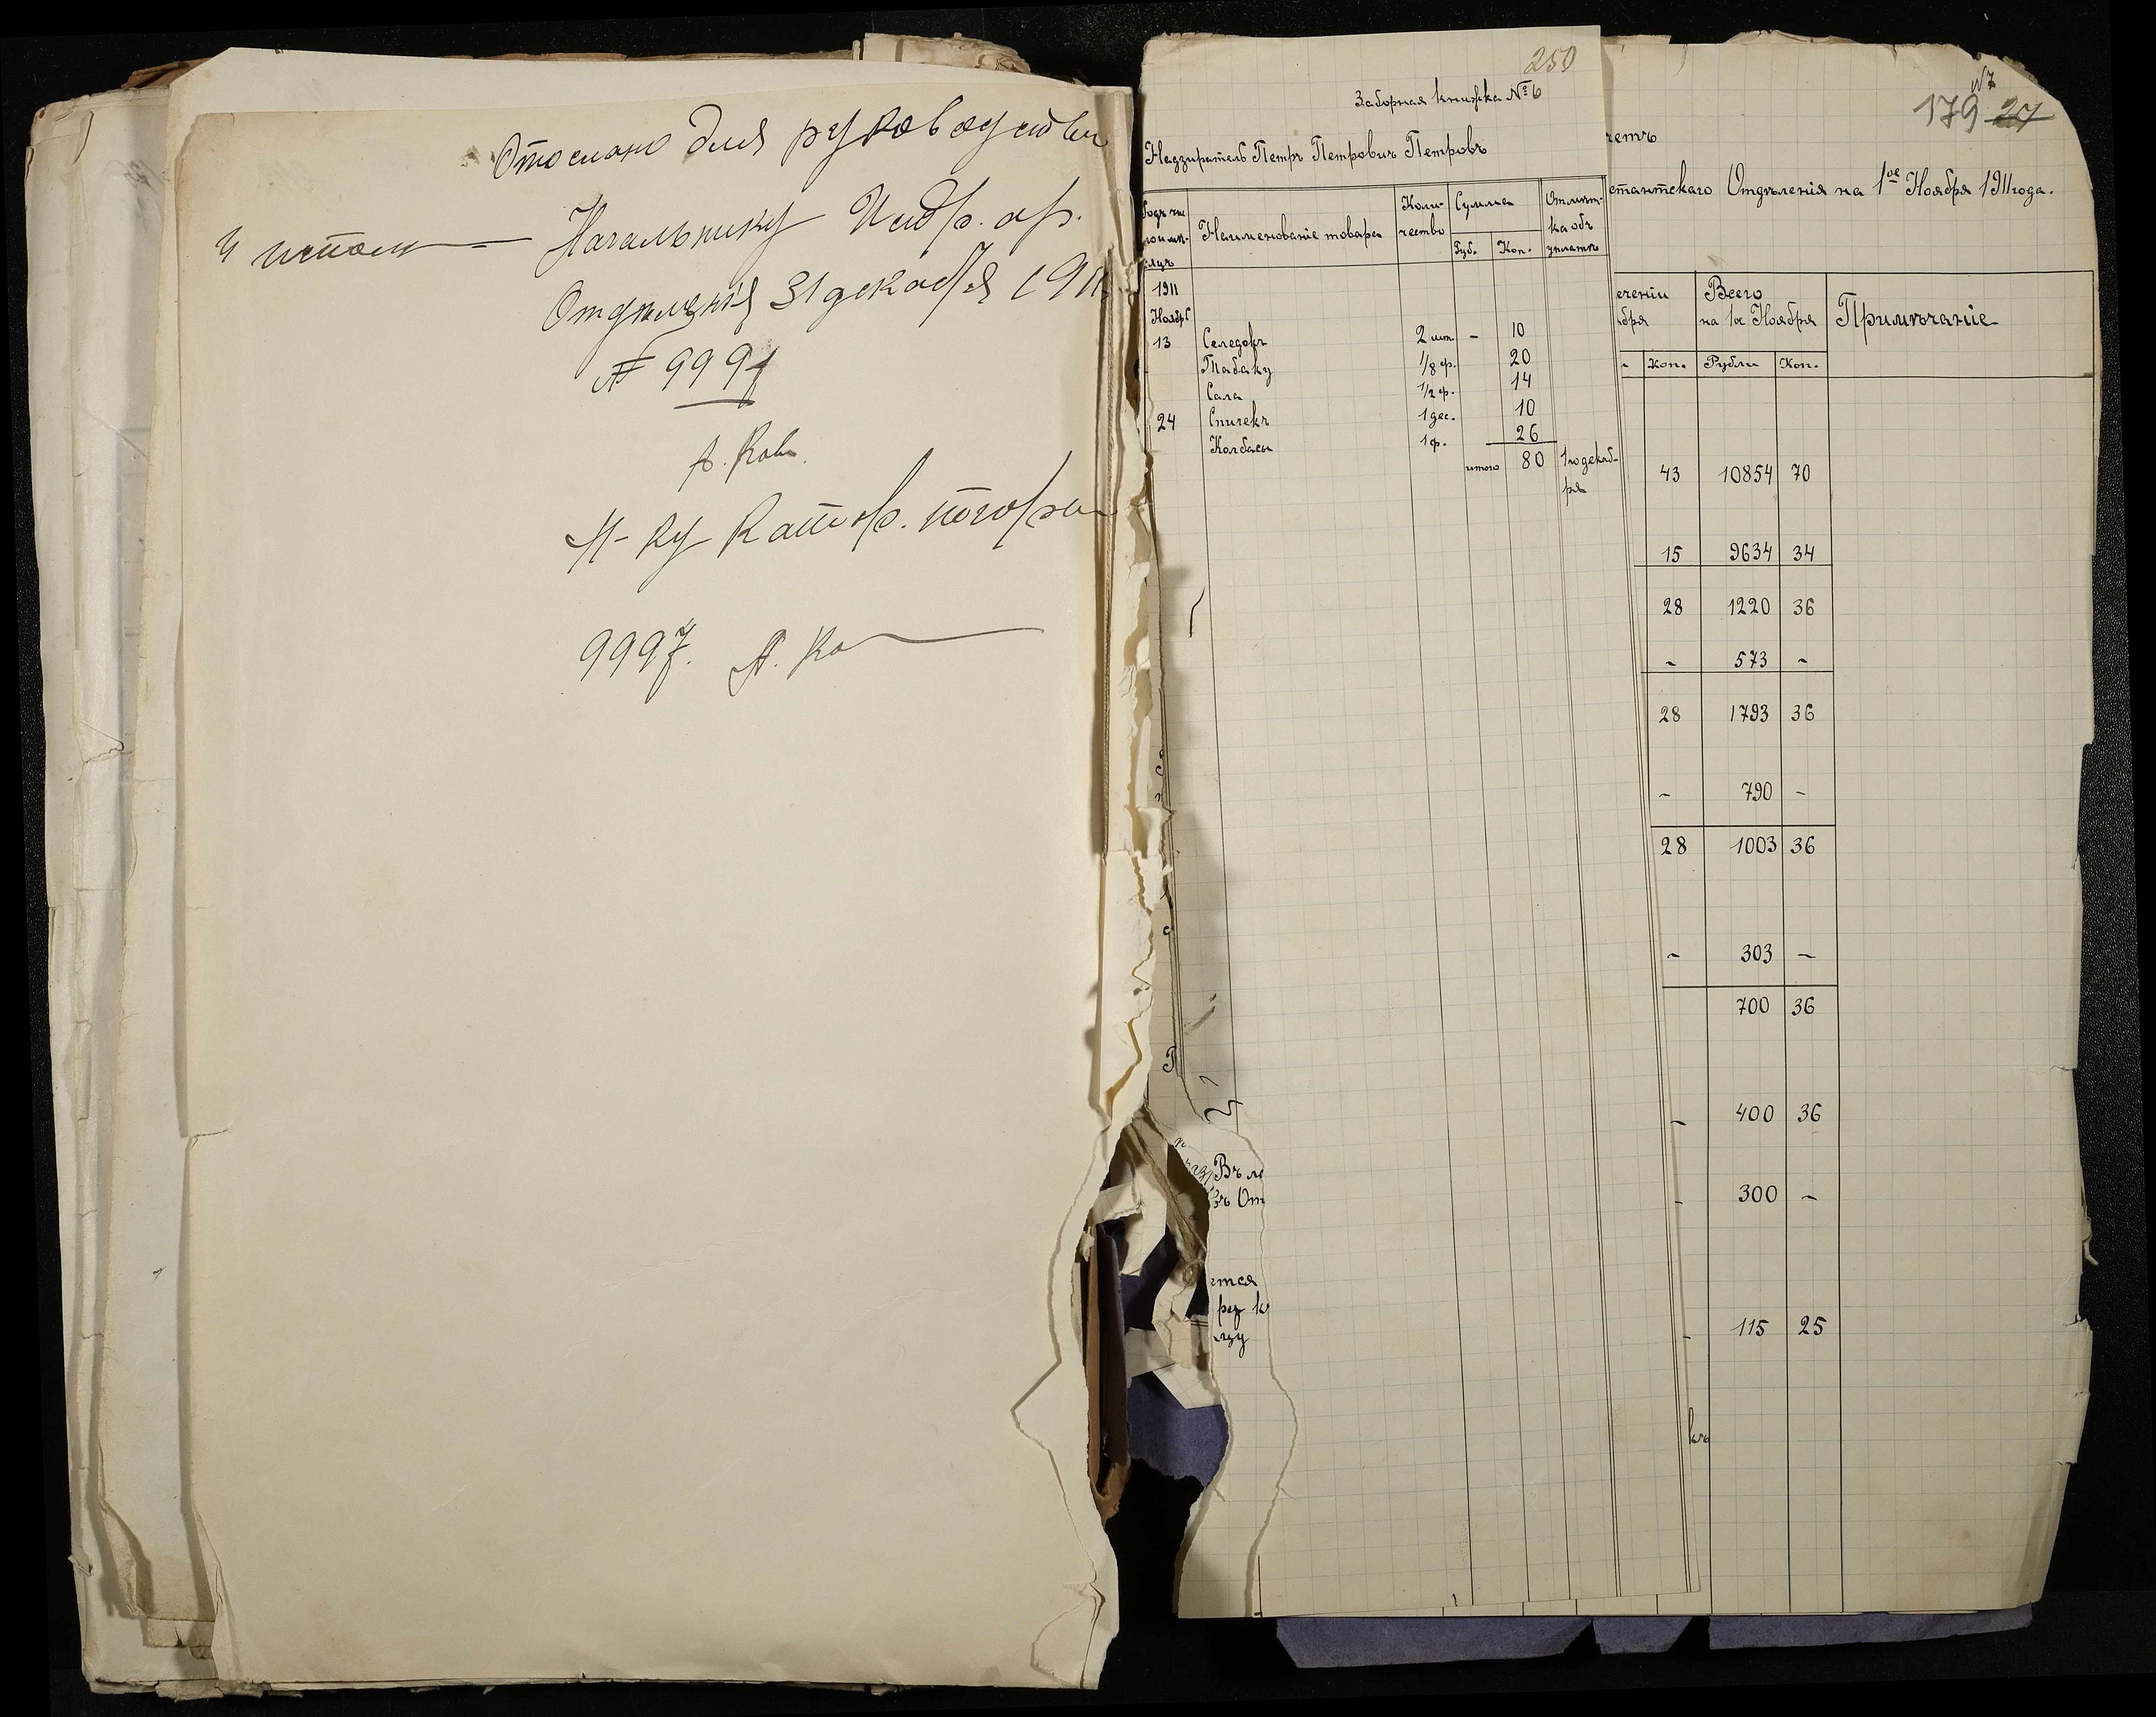 Отослано для руководства
и исполн
Начальнику Исп. ар.
Отдѣленія 31 декабря 1911
№ 9991
А. Ков.
Н-ку Катор. тюрьм
9997. А. Ко
250
Заборная книжка № 6
Надзиратель Петръ Петровичъ Петровъ
Наименованіе товара
Коли-
чество
Сумма
Руб.
Коп.
Отмѣт-
ка объ
уплатѣ
1911
Ноябрь
13 Селедокъ 2 шт. - 10
Табаку 1/8 ф. 20
Сала 1/2 ф. 14
24 Спичекъ 1 дес. 10
Колбасы 1 ф. 26
итого 80 1го декаб-
ря
№7
179 27
четъ
стантскаго Отдѣленія на 1ое Ноября 1911 года.
ечении
ября
Всего
на 1ое Ноября
Примѣчаніе
Коп. Рубли Коп.
43 10854 70
15 9634 34
28 1220 36
- 573 -
28 1793 36
- 790 -
28 1003 36
- 303 -
700 36
- 400 36
- 300 -
- 115 25
къ
Въ
От
ется